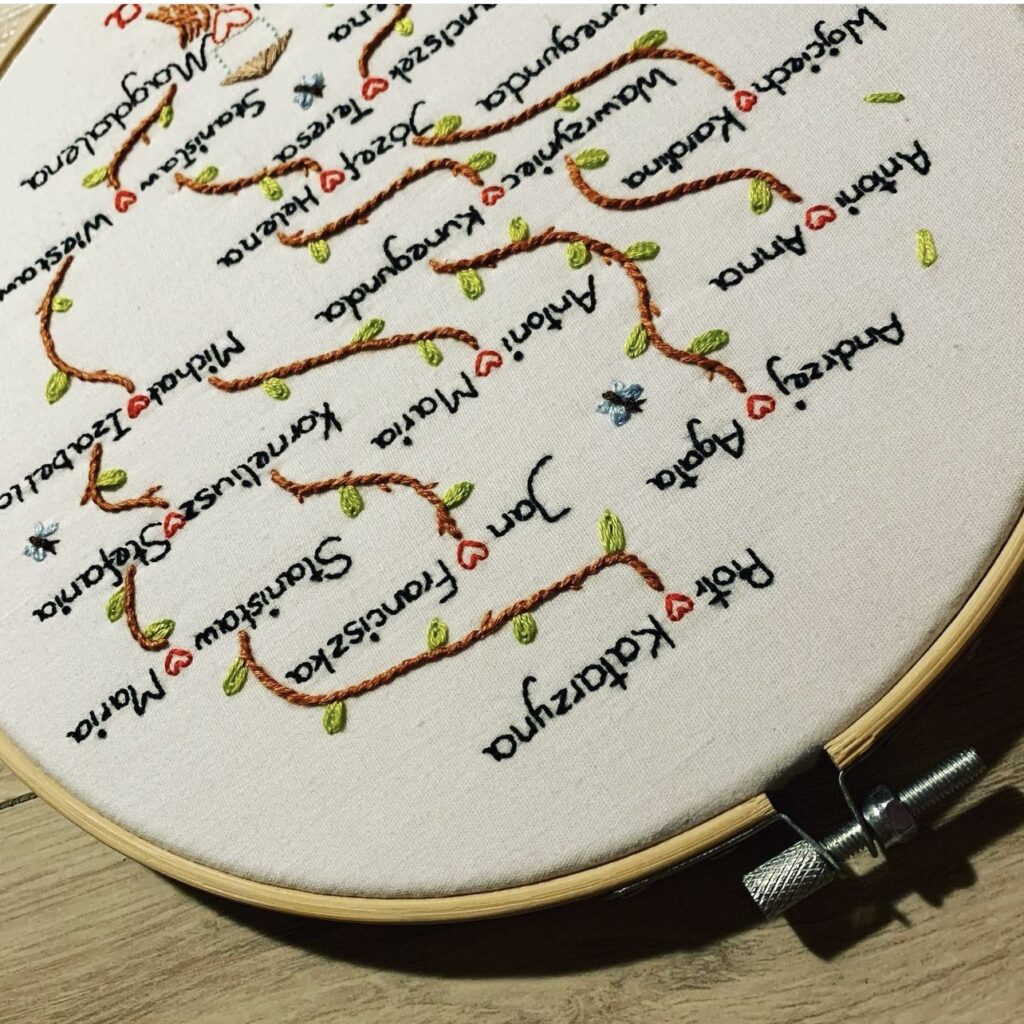 Piotr Katarzyna
Andrzej Agata
Antoni Anna
Wojciech Karolina
Jan Franciszka
Antoni Maria
Wawrzyniec Kunegunda
Kunegunda
Stanisław Maria
Korneliusz Stefania
Michał Izabella
Józef Helena
Teresa
Stanisław Wiesław
Magdalena